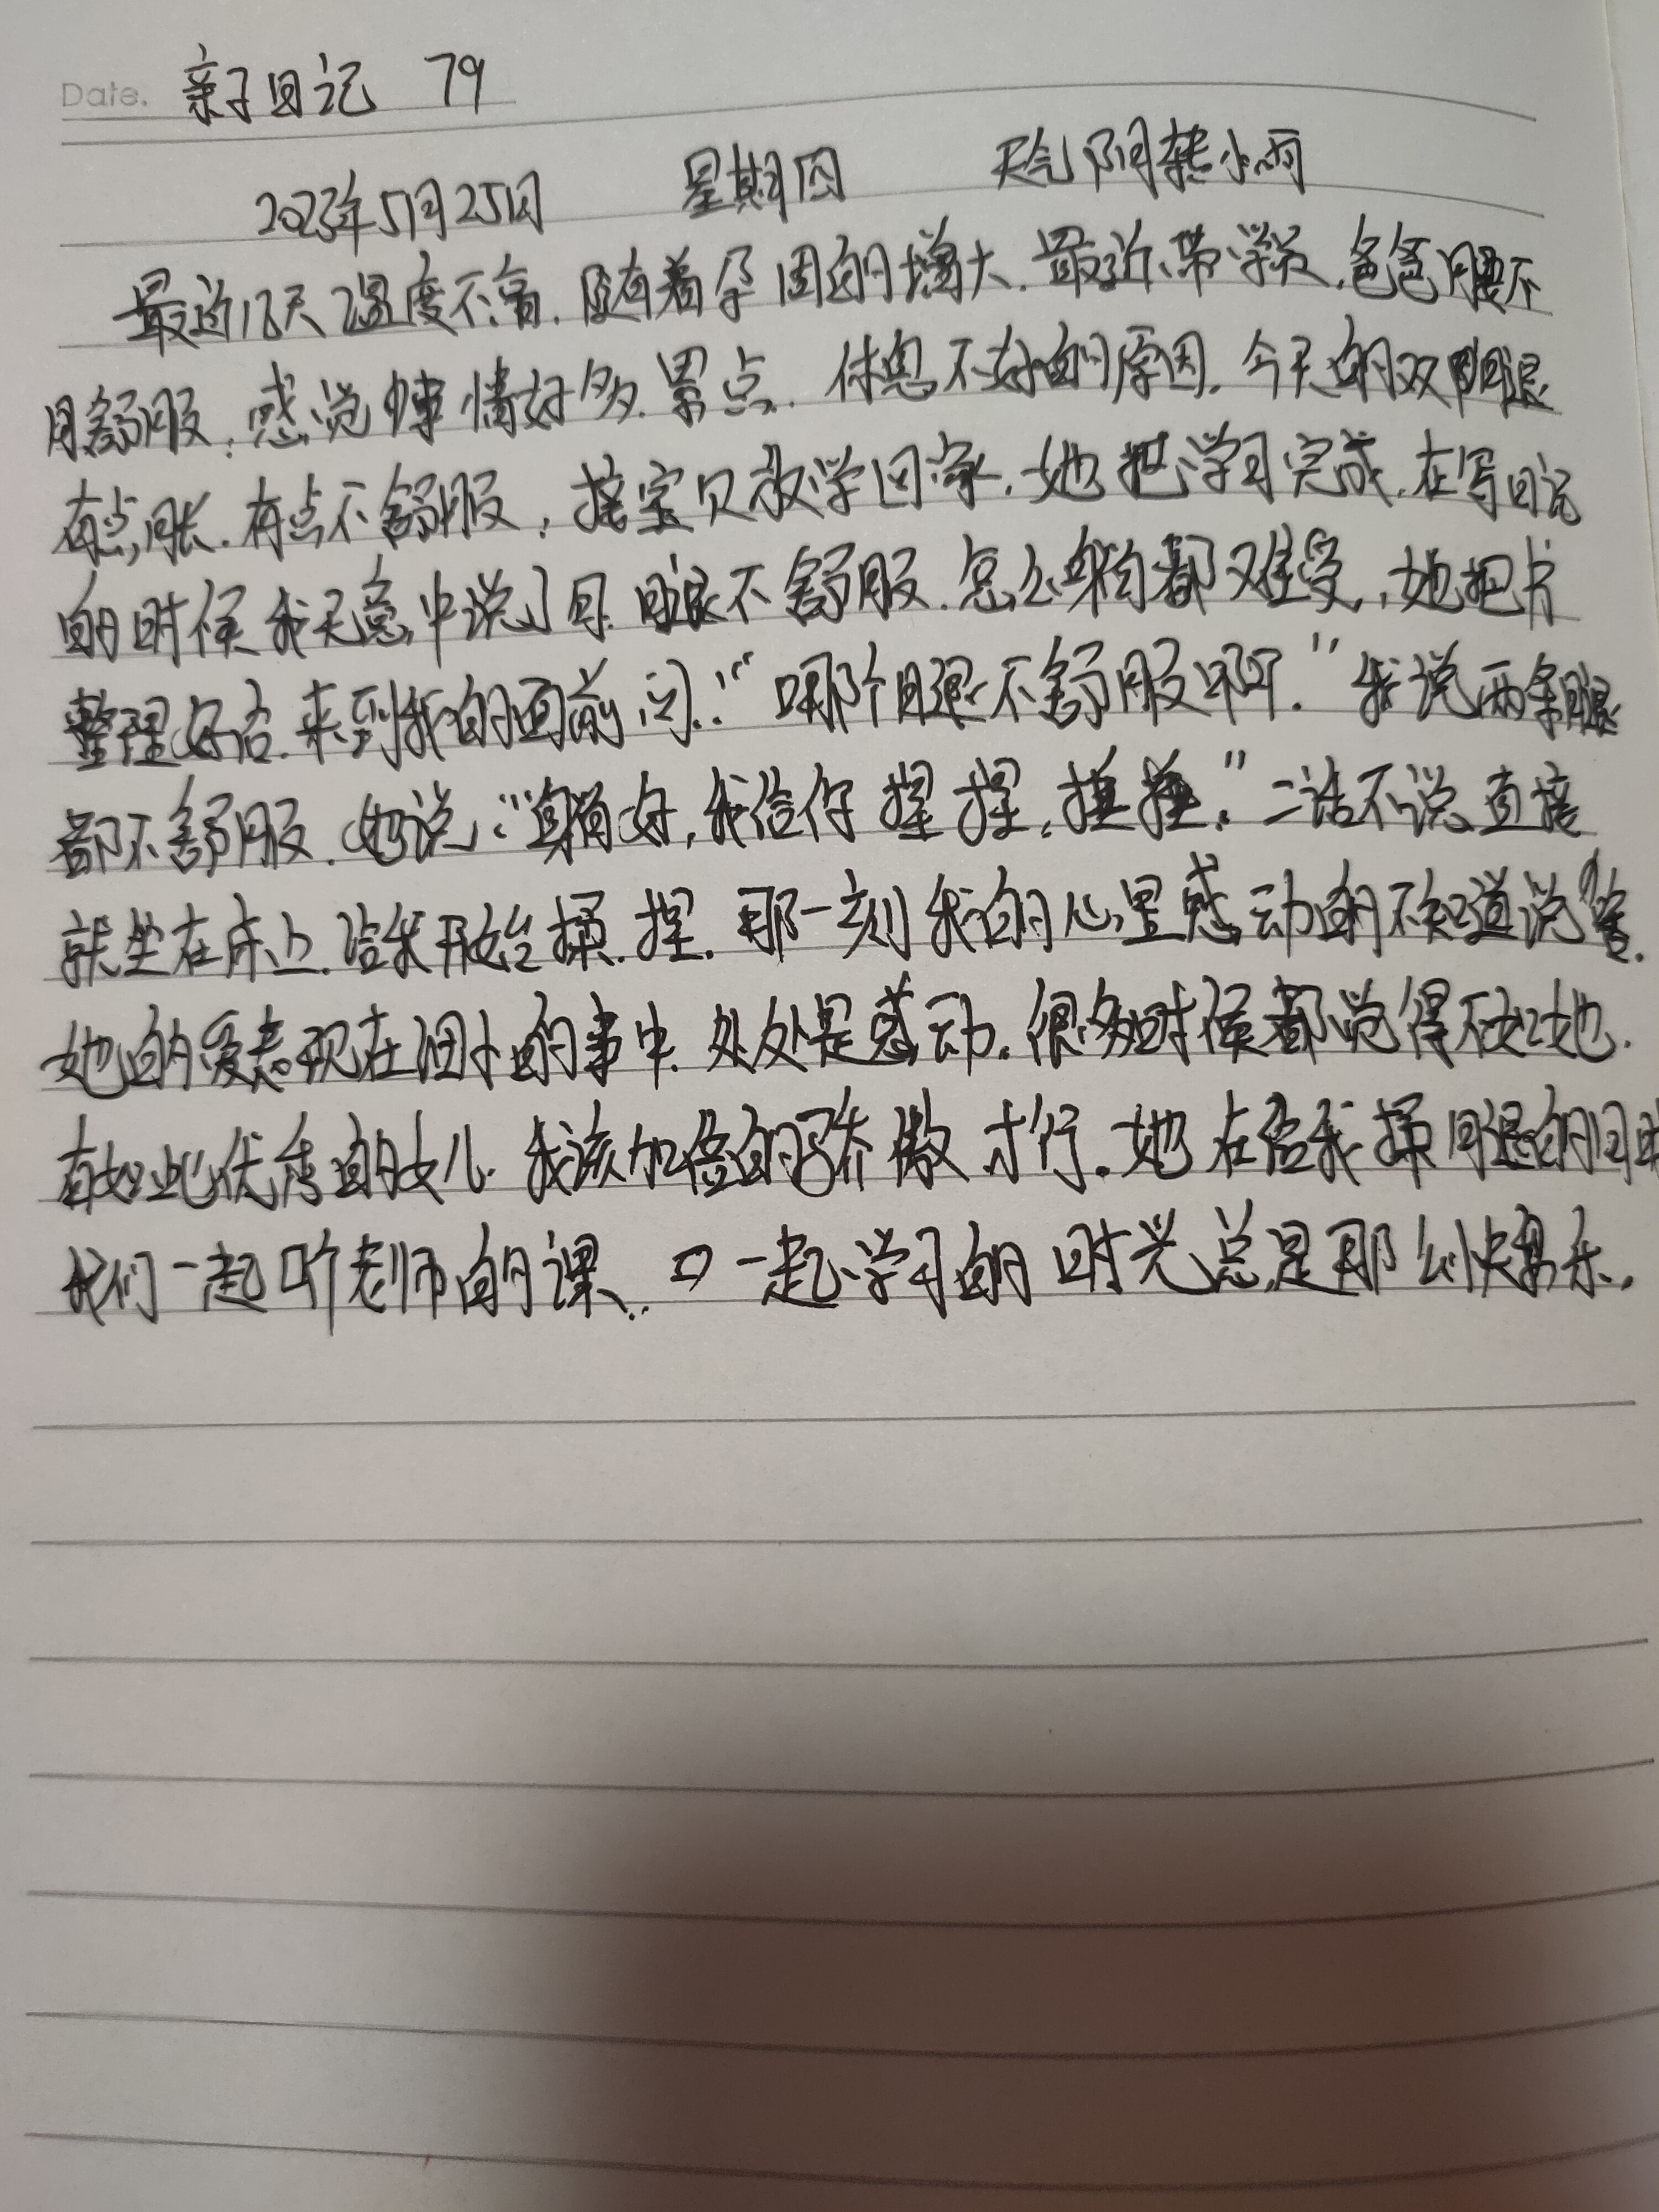 Date. 亲子日记 79
2023年5月25日 星期四 天气阴转小雨
最近几天温度不高.随着孕周的增大.最近带学校.爸爸腰不
舒服,感觉事情好多.累点.休息不好的原因.今天的双腿
有点胀.有点不舒服,接宝贝放学回家.她把学习完成.在写日记
的时候我无意中说了 腿不舒服.怎么躺都难受,她把书
整理好后.来到我的面前问:“哪个腿不舒服啊.”我说两条腿
都不舒服.她说:“躺好,我给你捏捏,捶捶.”二话不说直接
就坐在床上.给我开始揉.捏.那一刻我的心里感动的不知道说啥.
她的爱表现在细小的事中.处处是感动.很多时候都觉得不如她.
有如此优秀的女儿.我该加倍的骄傲才行.她在给我揉腿的同时
我们一起听老师的课. 一起学习的时光总是那么快乐.